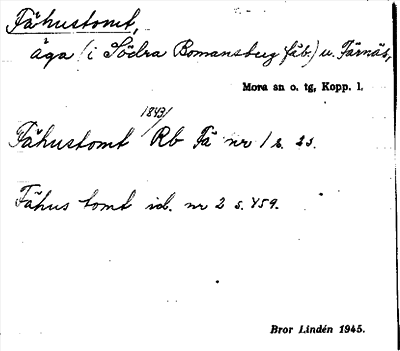 Fähustomt,
äga (i Södra Bomansberg fäb.) u. Färnäs,
Mora sn o. tg, Kopp. l.
1843/
Fähustomt Rb Fä nr 1 s. 23.
Fähus tomt id. nr 2 s. 459.
Bror Lindén 1945.